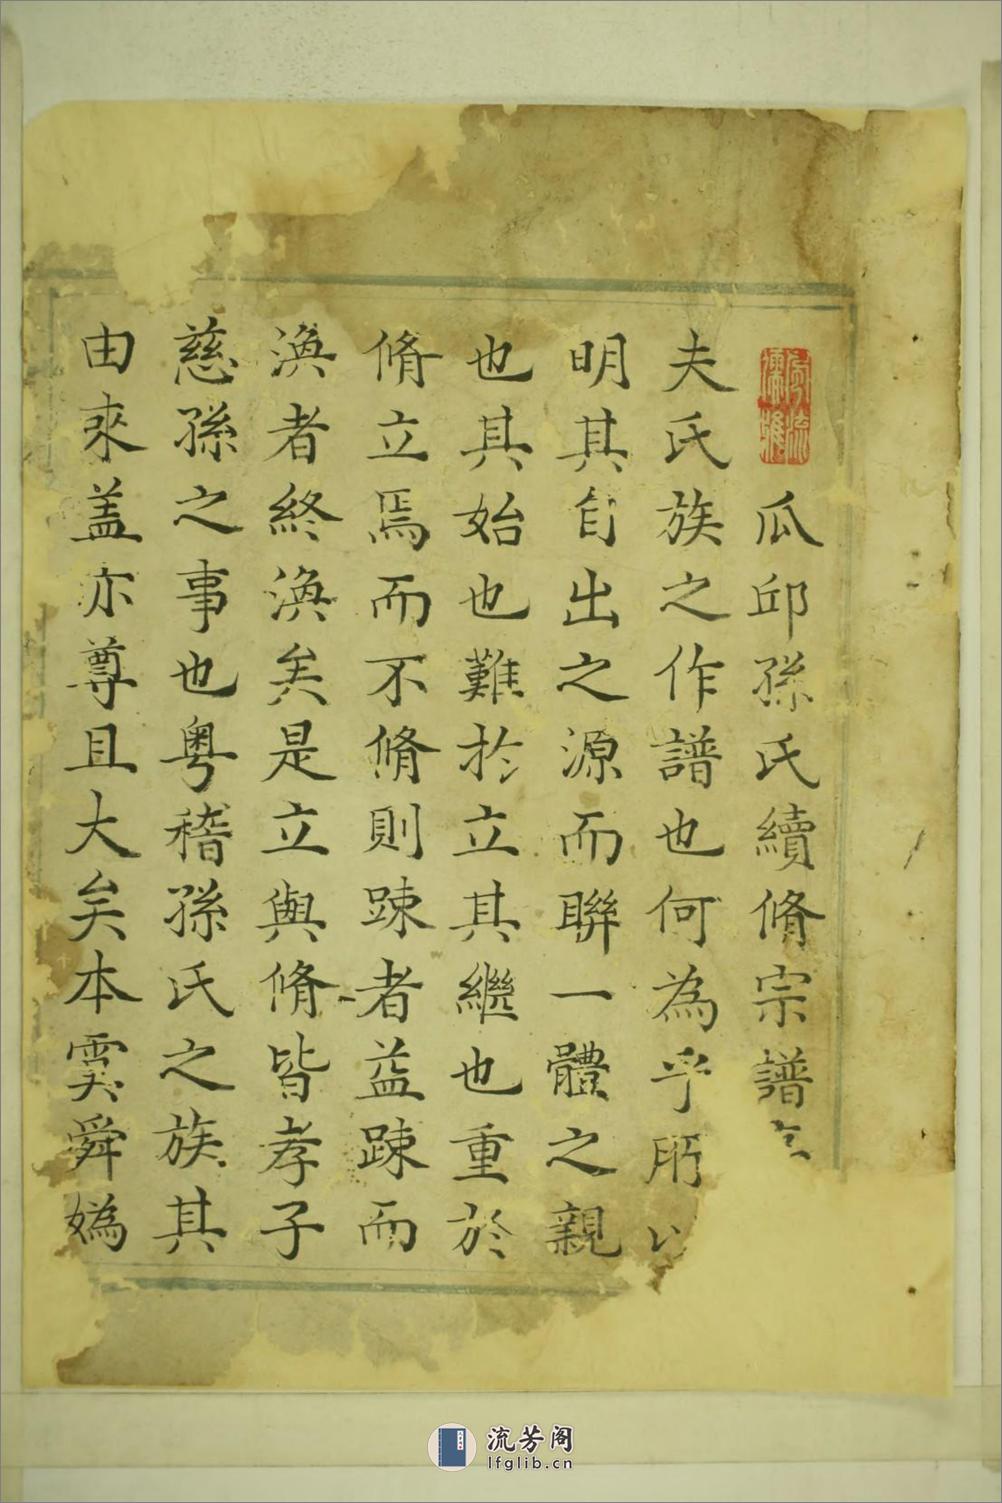 瓜邱孫氏續脩宗譜
夫氏族之作譜也何為乎所以
明其自出之源而聯一體之親
也其始也難於立其繼也重於
脩立焉而不脩則踈者益踈而
渙者終渙矣是立與脩皆孝子
慈孫之事也粵稽孫氏之族其
由來盖亦尊且大矣本虞舜媯
流芳阁
lfglib.cn